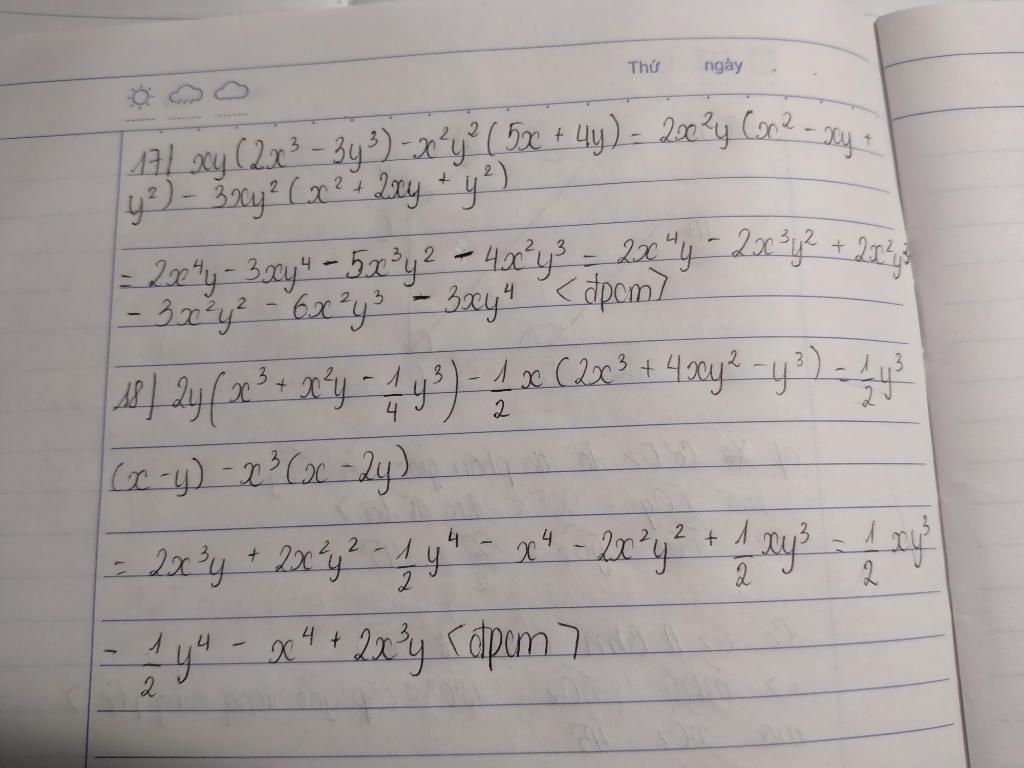 Thứ ngày
17) xy(2x³ - 3y³) - x²y²(5x + 4y) = 2x²y(x² - xy +
y²) - 3xy²(x² + 2xy + y²)
= 2x⁴y - 3xy⁴ - 5x³y² - 4x²y³ = 2x⁴y - 2x³y² + 2x²y³
- 3x²y² - 6x²y³ - 3xy⁴ <đpcm>
18) 2y(x³ + x²y - 1/4 y³) - 1/2 x(2x³ + 4xy² - y³) = 1/2 y³
(x - y) - x³(x - 2y)
= 2x³y + 2x²y² - 1/2 y⁴ - x⁴ - 2x²y² + 1/2 xy³ = 1/2 xy³
- 1/2 y⁴ - x⁴ + 2x³y <đpcm>